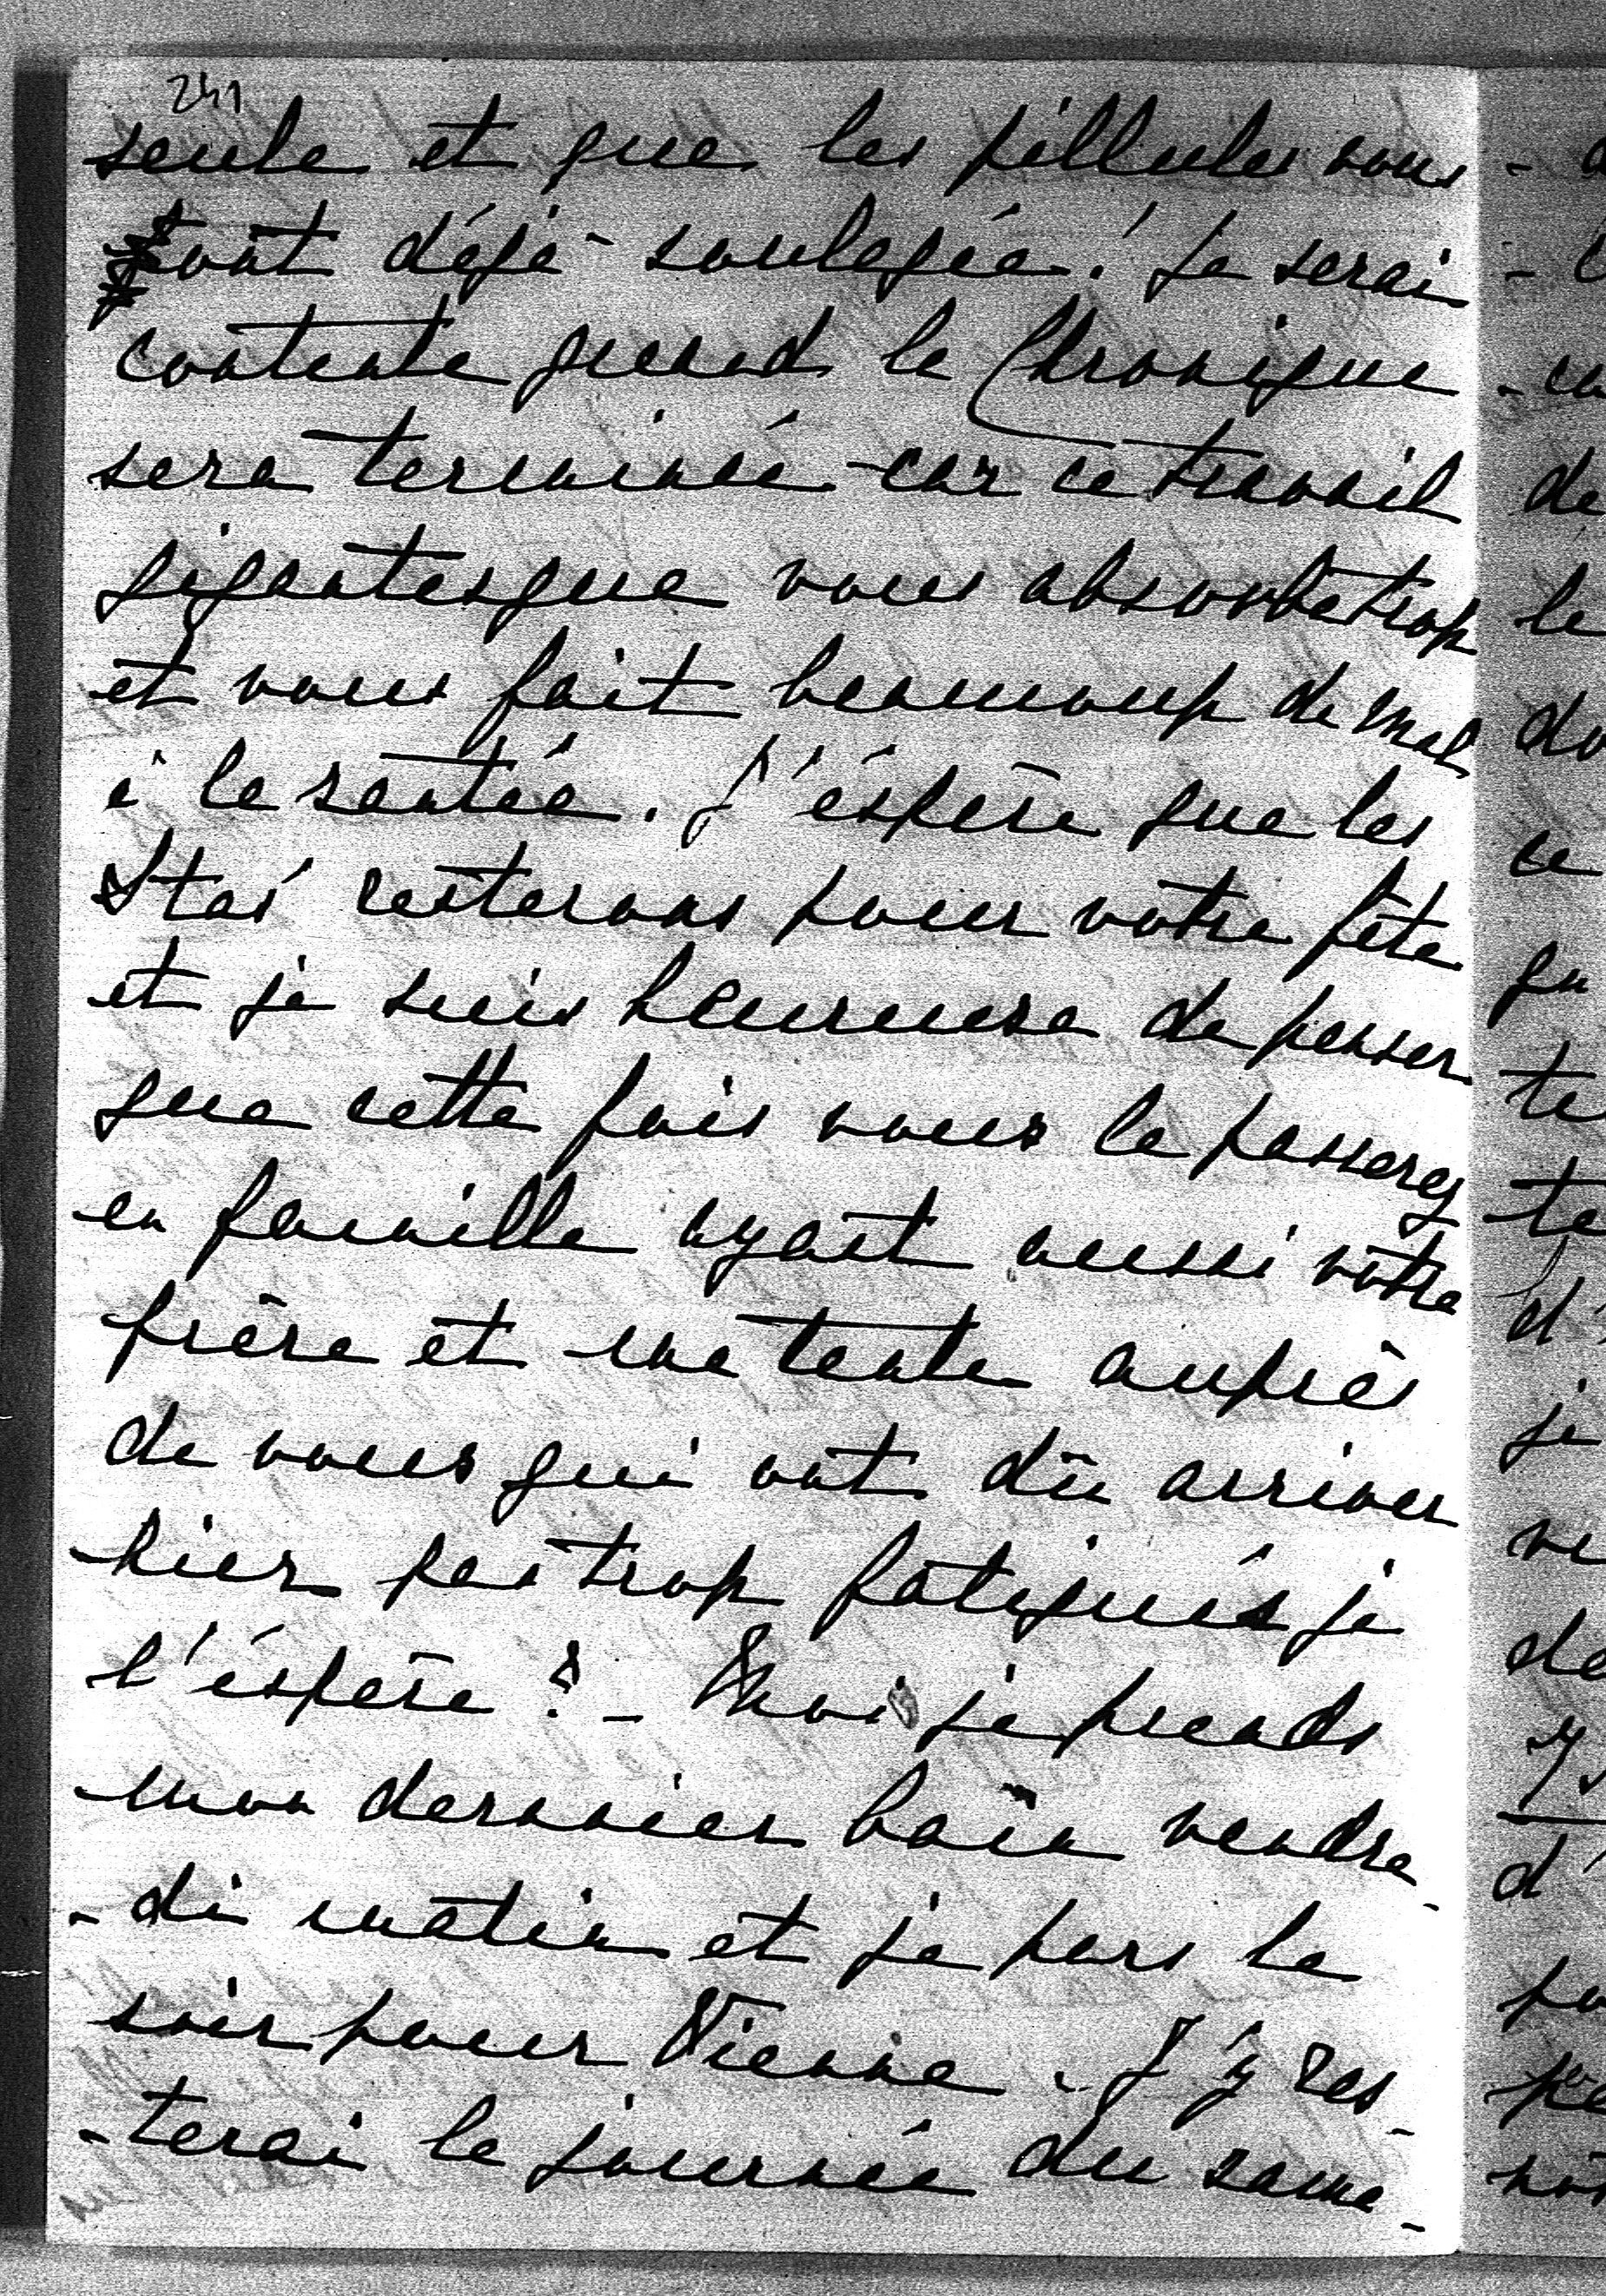 241
seule et que les pillules vous
ont déjà soulagée! Je serai
contente quand la Chronique
sera terminée car ce travail
gigantesque vous absorbe trop
et vous fait beaucoup de mal
à la santée. J'éspère que les
Stas' resterons pour votre fête
et je suis heureuse de penser
que cette fois vous la passerez
en famille ayant aussi vôtre
frère et ma tante auprès
de vous qui ont dû arriver
hier pas trop fatigués je
l'éspère? - Moi je prends
mon dernier bain vendre-
-di matin et je pars le
soir pour Vienne. J'y res-
-terai la journée du same-